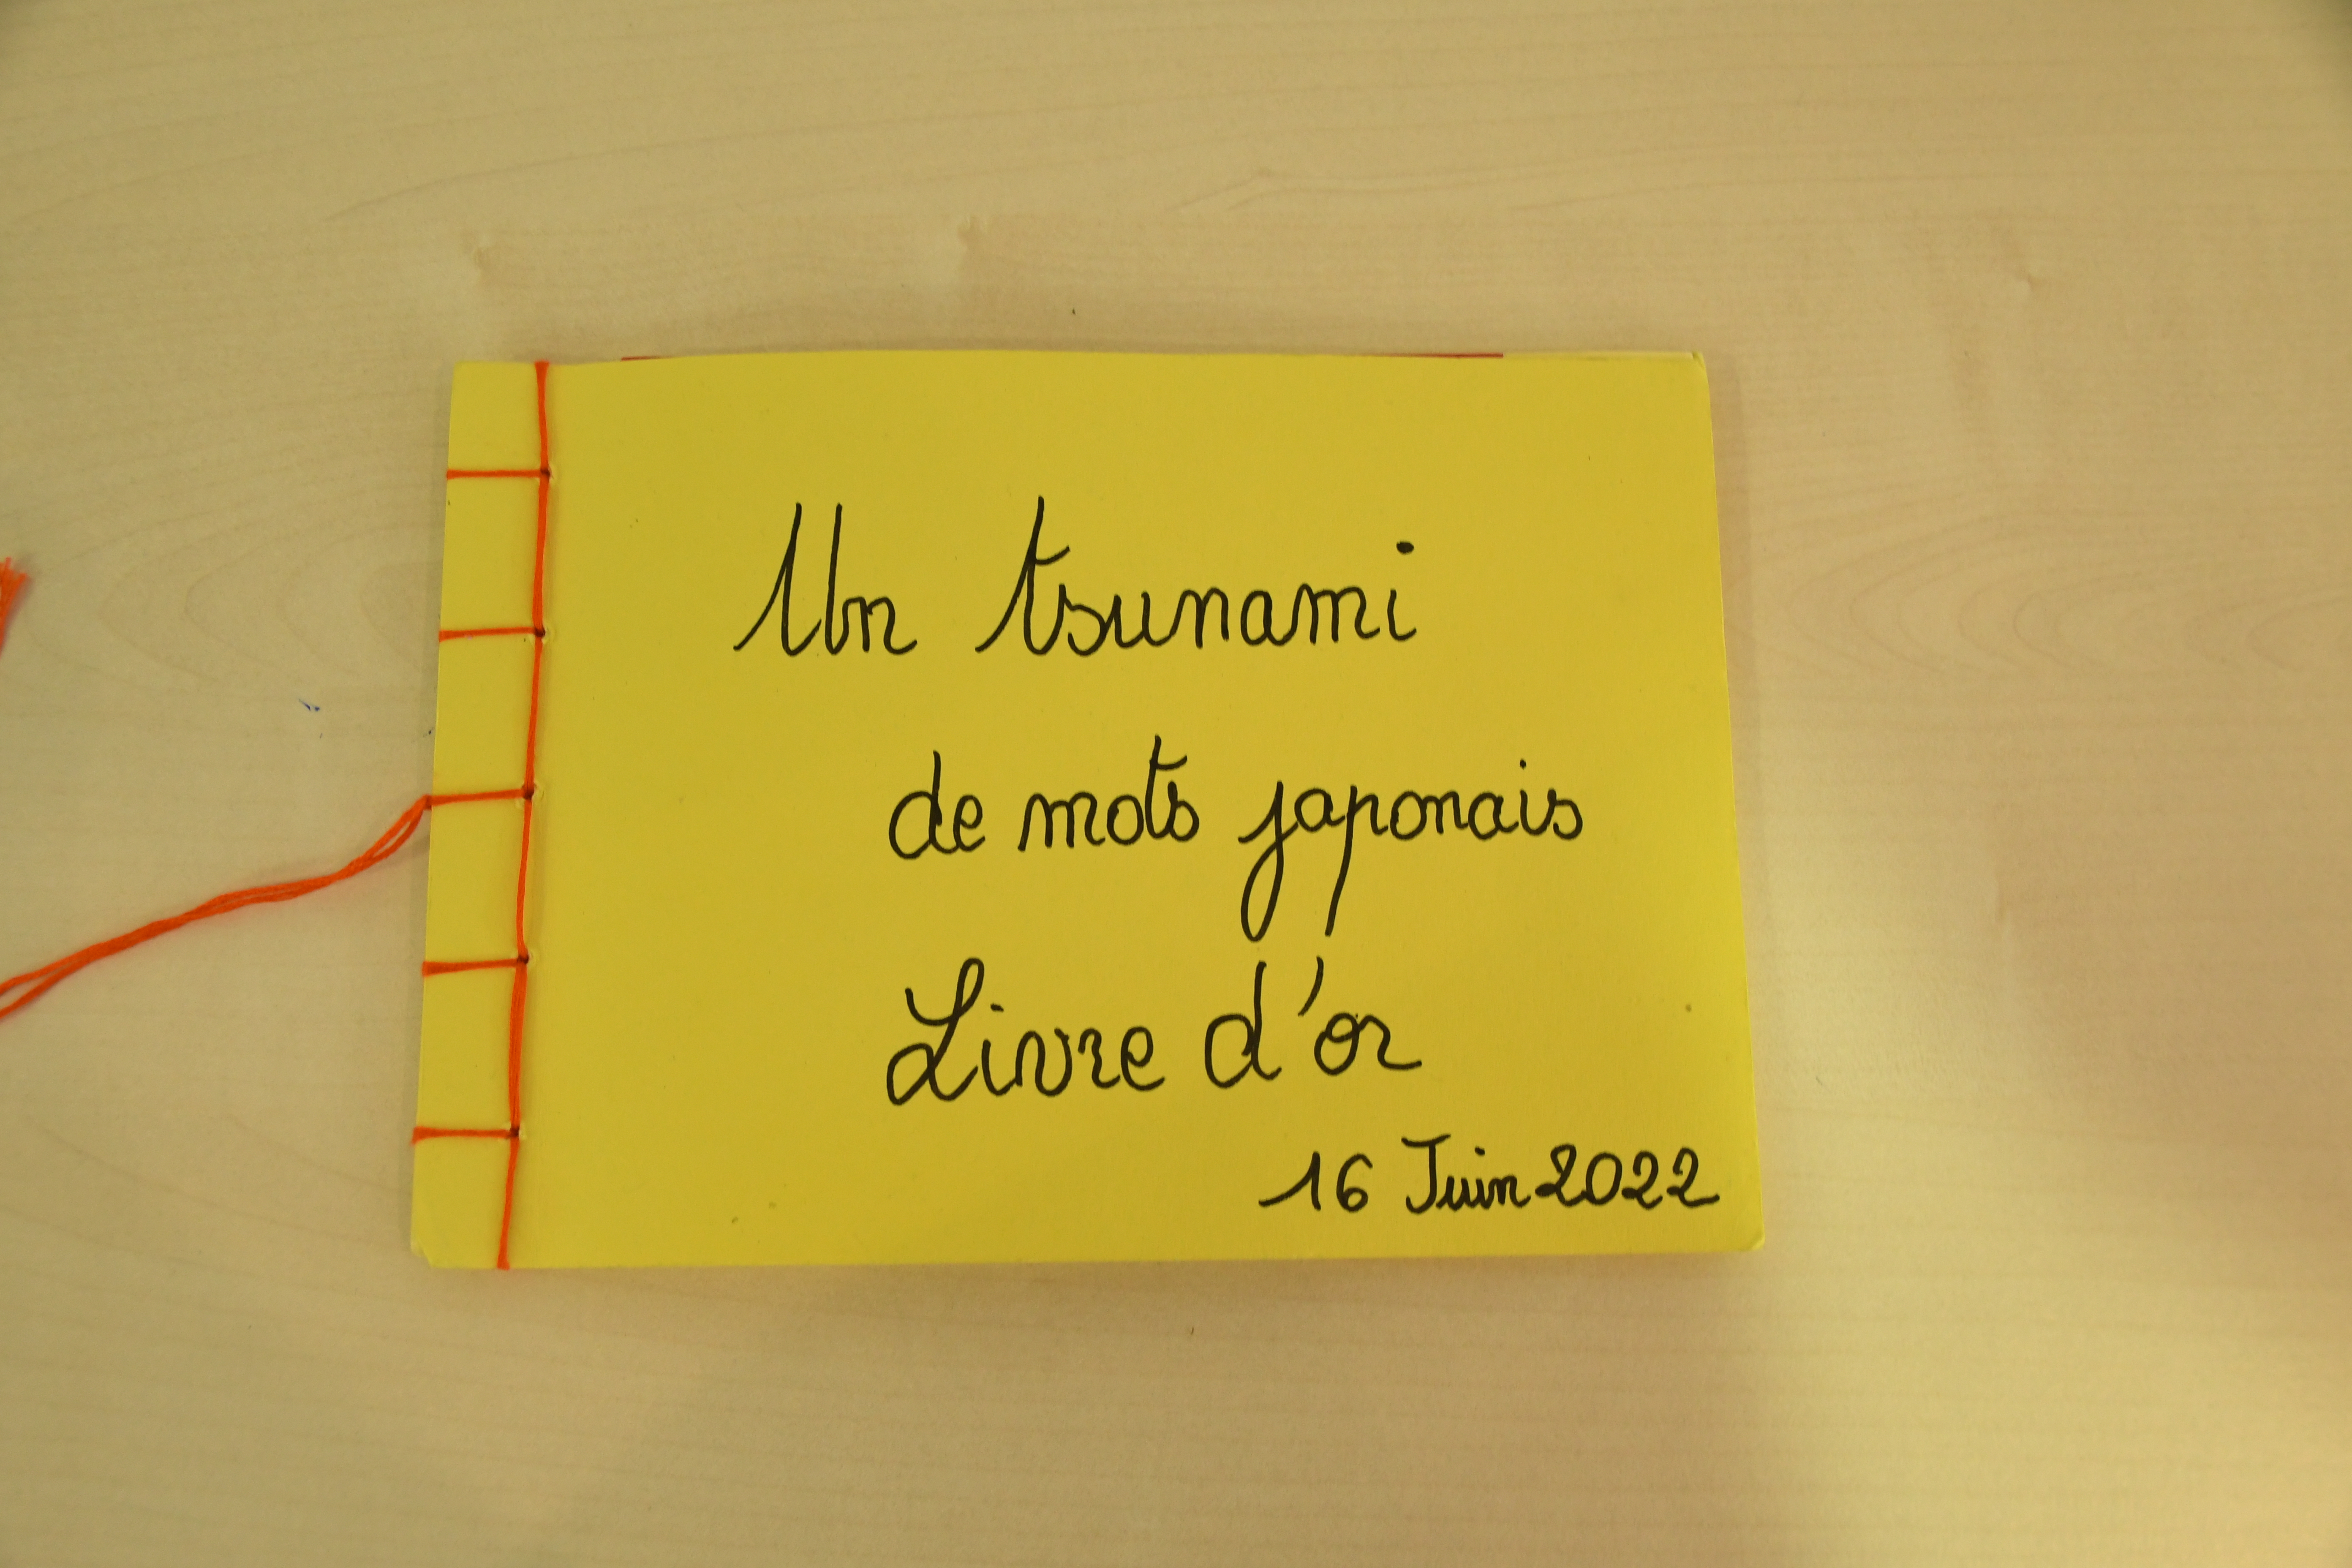 Un tsunami
de mots japonais
Livre d'or
16 Juin 2022